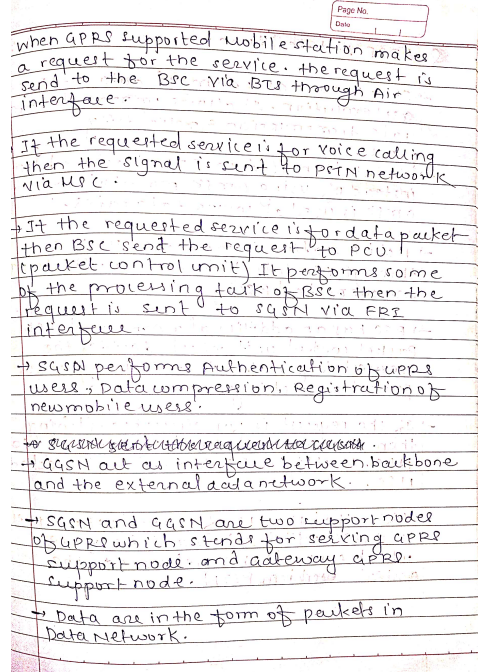 Page No.
Date
when GPRS supported Mobile station makes
a request for the service. the request is
send to the BSC via BTS through Air
interface.
If the requested service is for voice calling
then the signal is sent to PSTN network
via MSC.
→ If the requested service is for data packet
then BSC send the request to PCU
(packet control unit) It performs some
of the processing task of BSC. then the
request is sent to SGSN via FRI
interface.
→ SGSN performs Authentication of GPRS
users, Data compression, Registration of
new mobile users.
→ GGSN act as interface between backbone
and the external data network.
→ SGSN and GGSN are two support nodes
of GPRS which stends for serving GPRS
support node. and Gateway GPRS.
support node.
→ Data are in the form of packets in
Data Network.